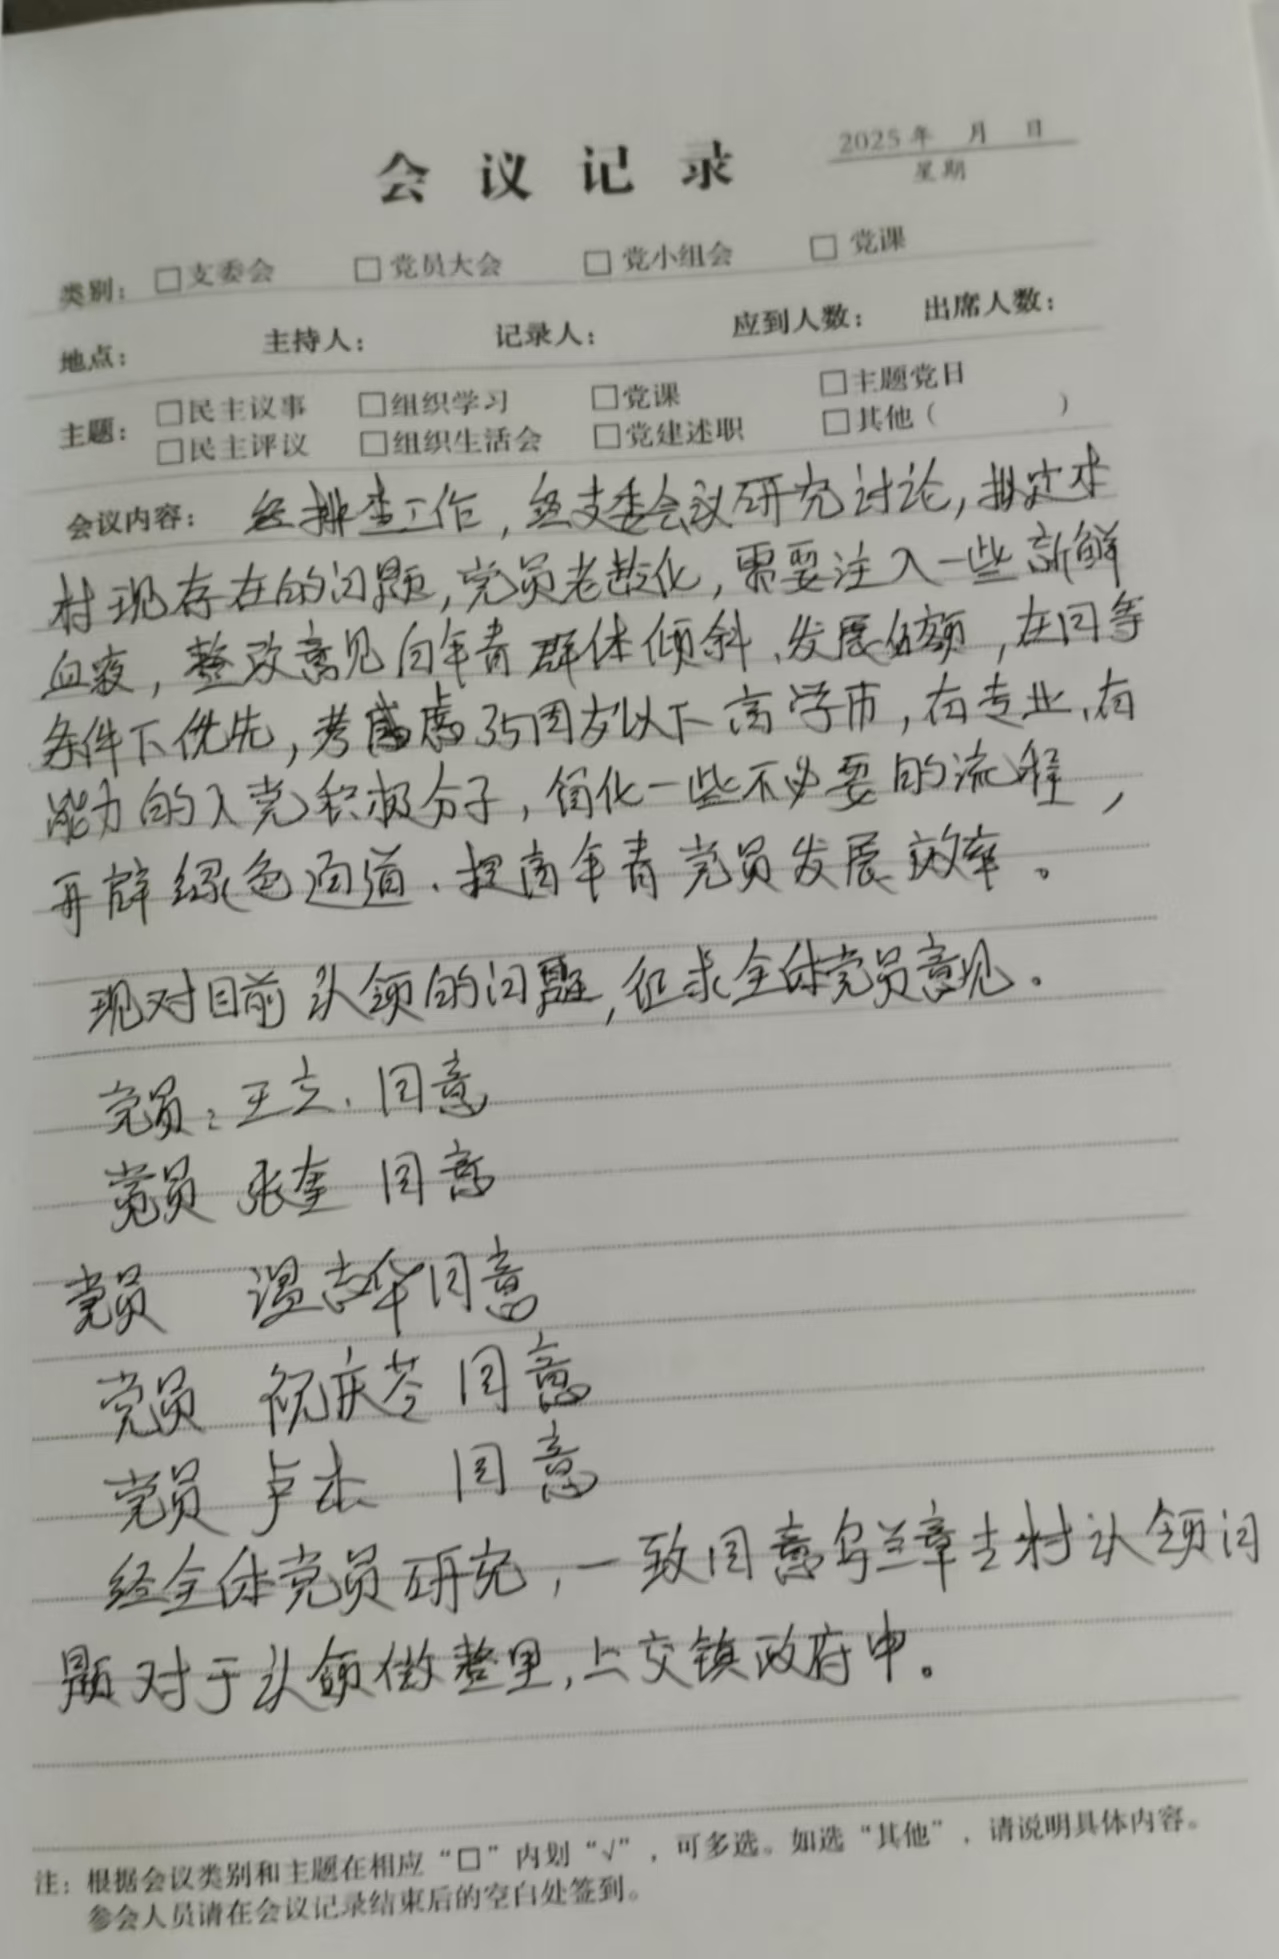 会议记录
2025年 月 日
星期
类别: □支委会 □党员大会 □党小组会 □党课
地点: 主持人: 记录人: 应到人数: 出席人数:
主题: □民主议事 □组织学习 □党课 □主题党日
□民主评议 □组织生活会 □党建述职 □其他( )
会议内容: 经排查工作,经支委会议研究讨论,拟定本
村现存在的问题,党员老龄化,需要注入一些新鲜
血液,整改意见向年青群体倾斜、发展名额,在同等
条件下优先,考虑35周岁以下高学历,有专业、有
能力的入党积极分子,简化一些不必要的流程,
开辟绿色通道、提高年青党员发展效率。
现对目前认领的问题,征求全体党员意见。
党员:王立、同意
党员 张奎 同意
党员 温志华同意
党员 祝庆芩 同意
党员 卢杰 同意
经全体党员研究,一致同意乌兰章古村认领问
题对于认领做整理,上交镇政府中。
注:根据会议类别和主题在相应“□”内划“√”,可多选。如选“其他”,请说明具体内容。
参会人员请在会议记录结束后的空白处签到。